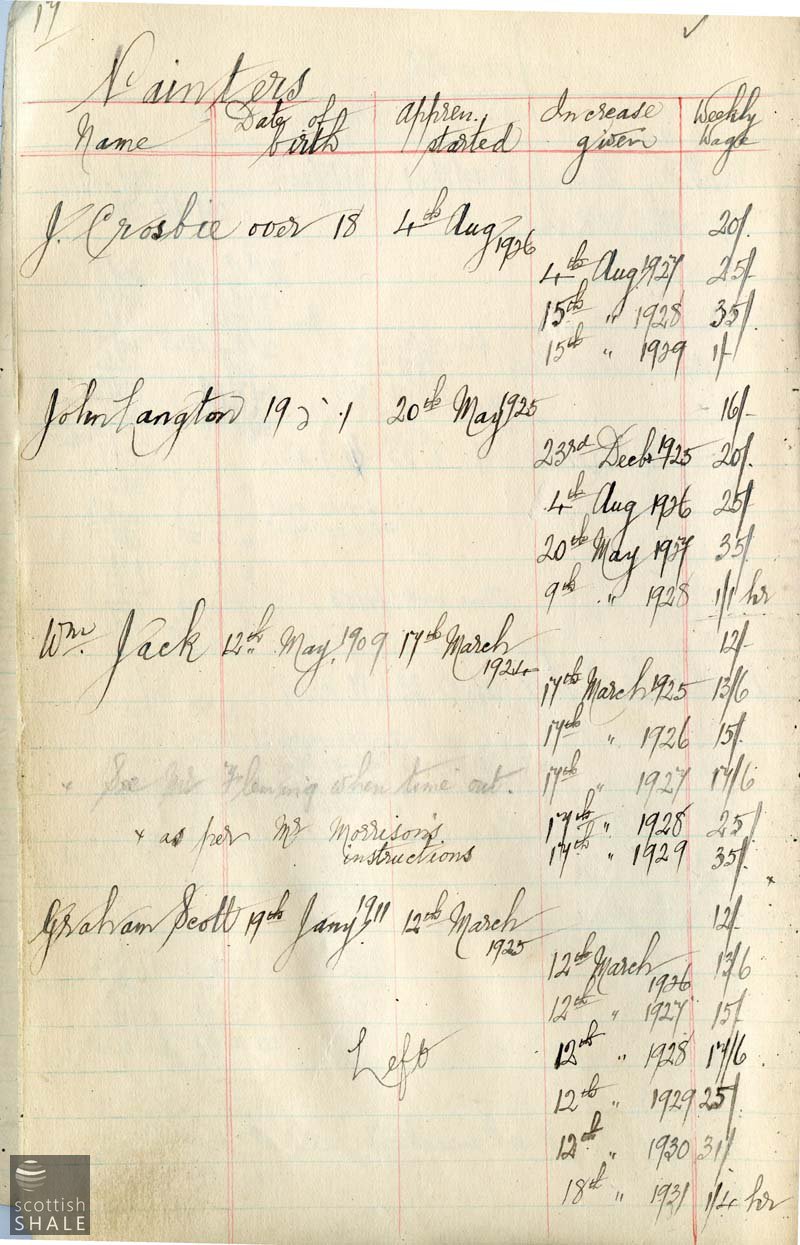 17
Painters
Name Date of birth Appren. started Increase given Weekly Wage
J. Crosbie over 18 4th Aug 1926 20/.
4th Aug 1927 25/-
15th " 1928 35/.
15th " 1929 1/-
John Langton 19 20th May 1925 16/-
23rd Decbr 1925 20/.
4th Aug 1926 25/
20th May 1927 35/
9th " 1928 1/1 hr
Wm. Jack 12th May, 1909 17th March 1924 12/-
17th March 1925 13/6
17th " 1926 15/.
× See Mr Fleming when time out. 17th " 1927 17/6
× as per Mr Morrison's instructions 17th " 1928 25/
17th " 1929 35/. ×
Graham Scott 19th Jany 1911 12th March 1925 12/-
12th March 1926 13/6
12th " 1927 15/
Left 12th " 1928 17/6
12th " 1929 25/.
12th " 1930 31/
18th " 1931 1/4 hr
scottish
SHALE